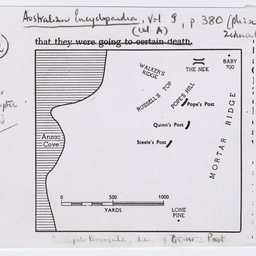 Australian Encyclopaedia, Vol 9, p 380
(Vol A)
that they were going to certain death.
WALKER'S
RIDGE
THE NEK
BABY
700
RUSSELL'S TOP
POPE'S HILL
Pope's Post
Quinn's Post
Steele's Post
MORTAR RIDGE
Anzac
Cove
0 500 1000
YARDS
LONE
PINE
Post